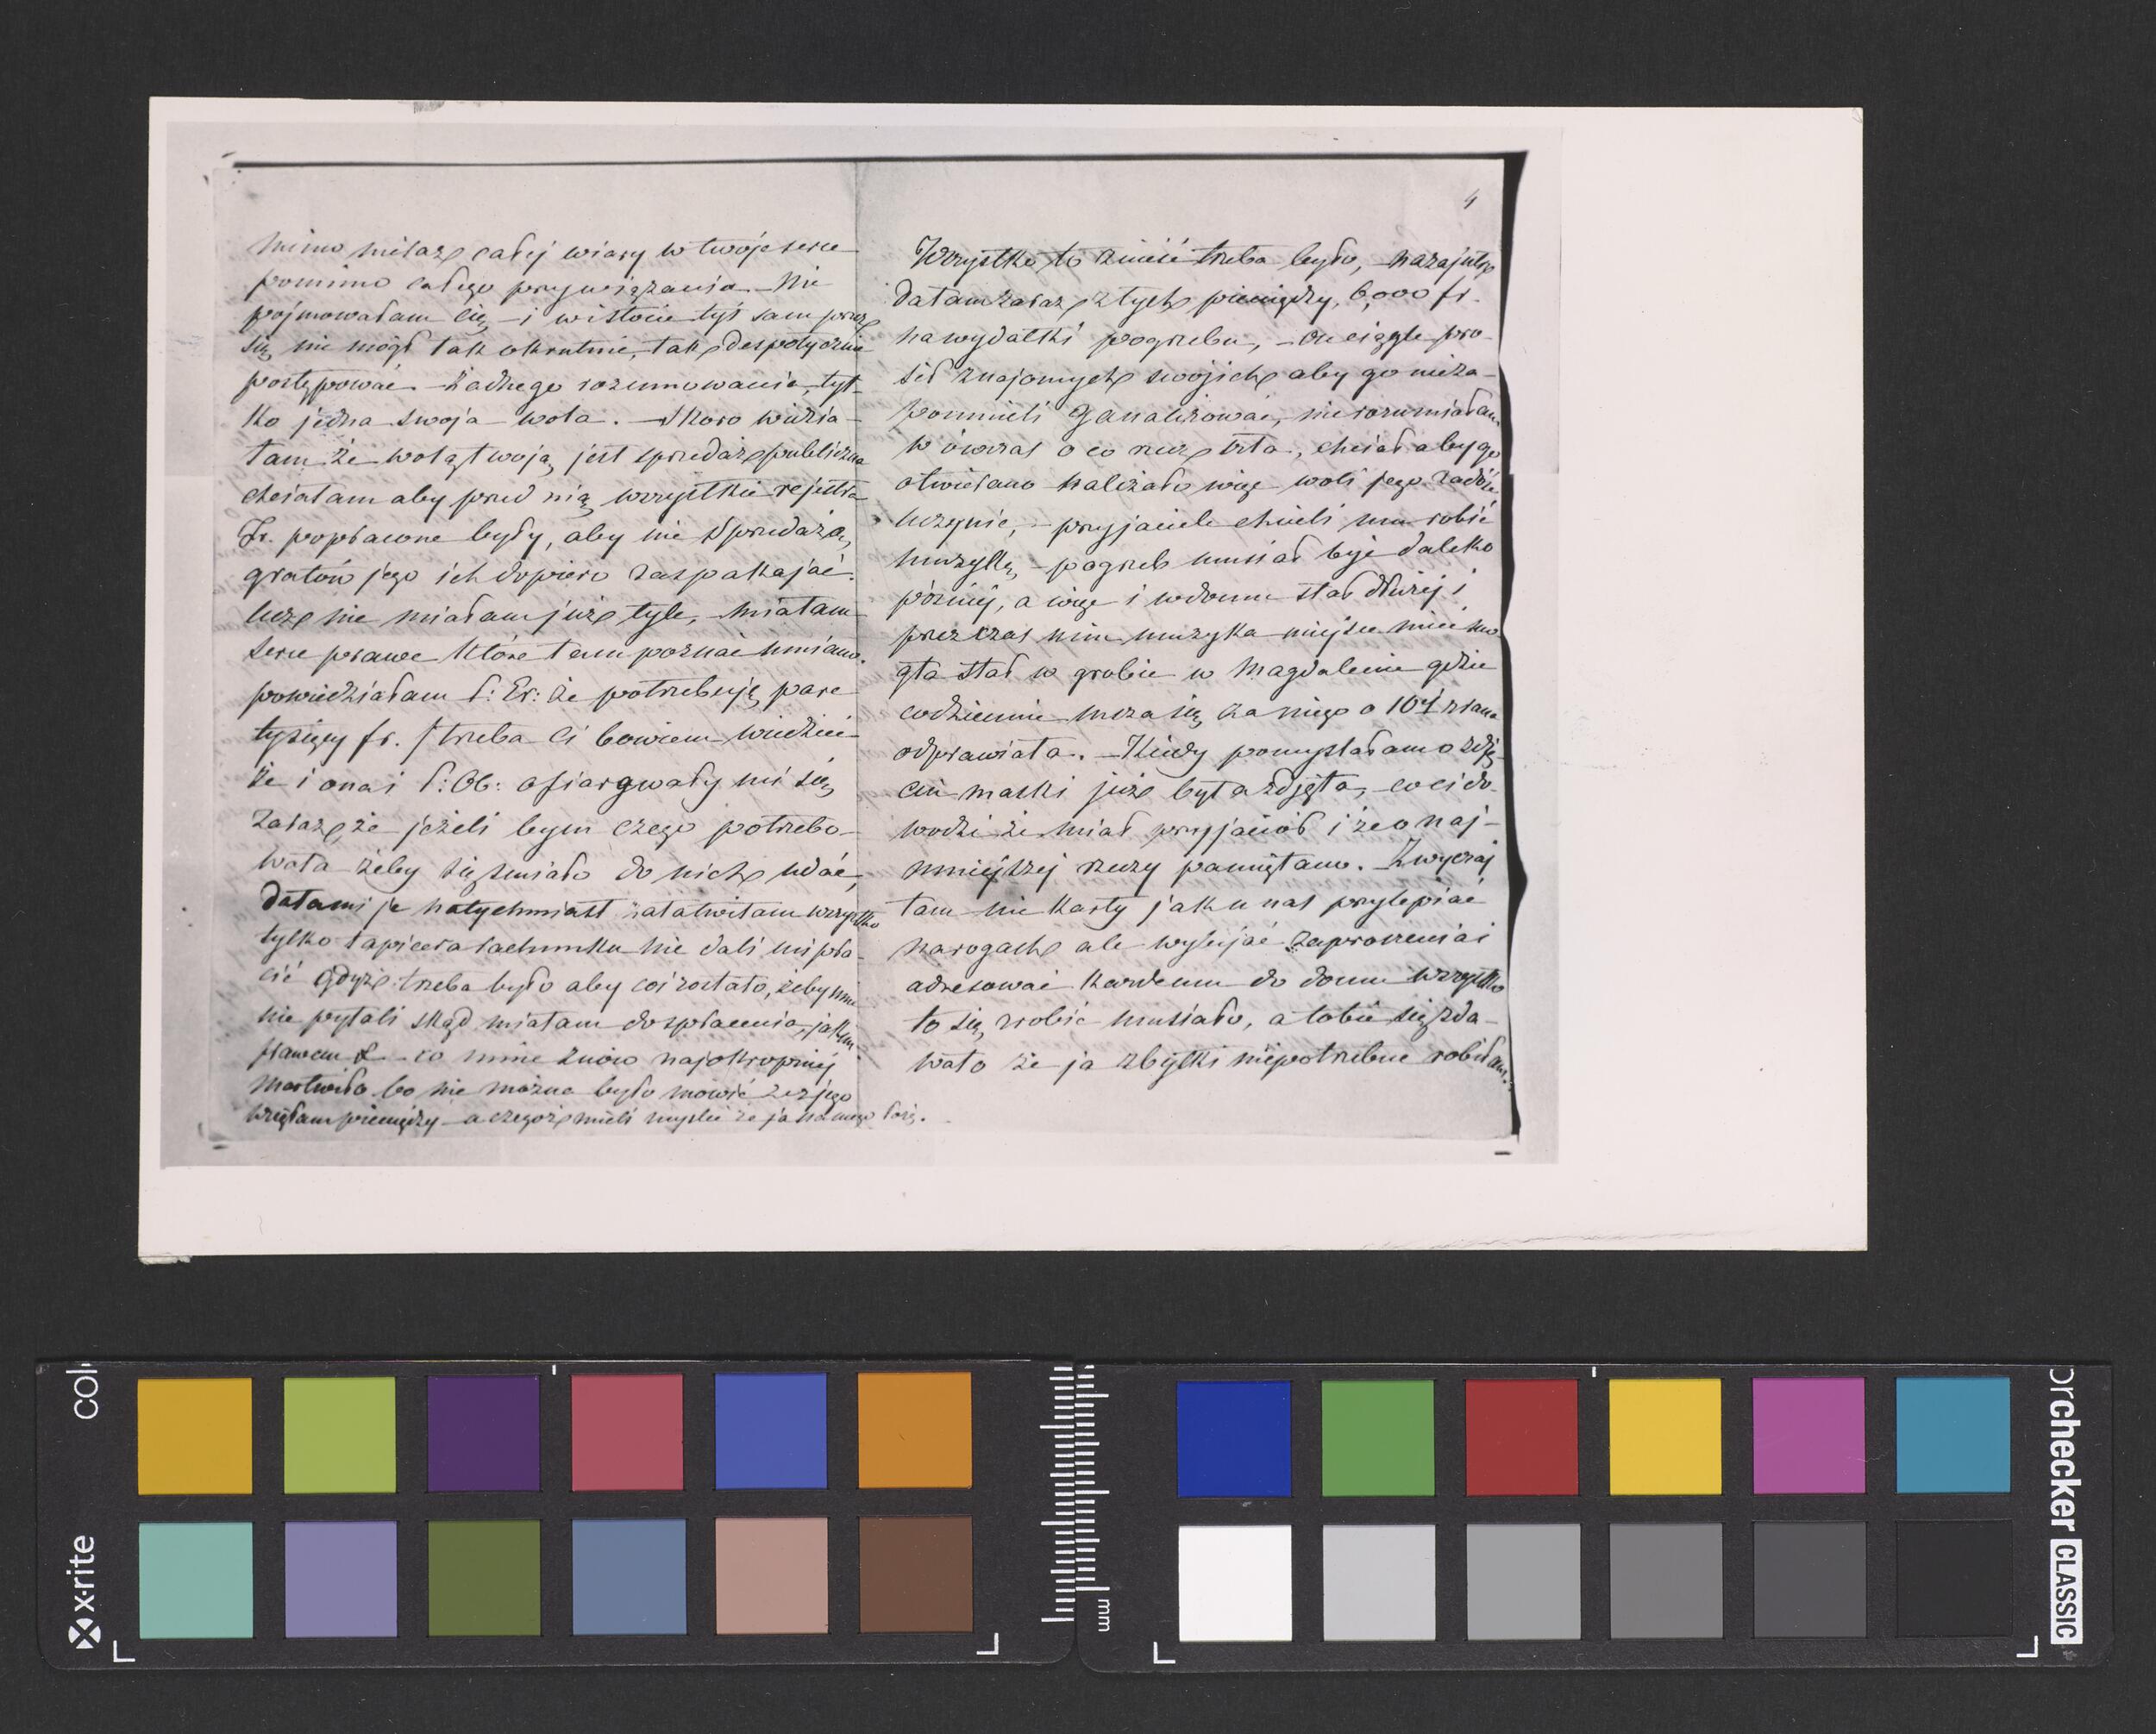 4
mimo miłaże całéj wiary w twoje serce
pomimo całego przywiązania. Nie
pojmowałam Cię, – i w istocie tyś sam przez
się nie mógł tak okrutnie, tak despotycznie
postępować. Żadnego rozumowania, tyl-
ko jedna swoja wola. – Skoro widzia-
łam że wolą twoją jest sprzedaż publiczna
chciałam aby przed nią wszystkie
Fr. popłacone były, aby nie sprzedażą
gratów jego ich dopiero zaspakajać.
lecz nie miałam już tyle, miałam
serce prawe które tam poznać umiano.
powiedziałam P: Er: że potrzebuję pare
tysięcy fr. / trzeba Ci bowiem wiedzieć
że i ona i P: Ob: ofiarowały mi się
zaraz, że jeżeli bym czego potrzebo-
wała żeby się śmiało do nich udać,
dała mi je natychmiast załatwiłam wszystko
tylko tapicera rachunku nie dali mi pła-
cić gdyż trzeba było aby coś zostało, żeby mnie
nie pytali skąd miałam do spłacenia,
co mnie znów najokropniéj
martwiło bo nie można było mowić że z jego
wzięłam pieniędzy – a czegoż mieli myślić że ja na niego łożę.
Wszystko to znieść trzeba było, – nazajutrz
dałam zaraz z tych pieniędzy, 6,000 fr.
na wydatki pogrzebu, – On ciągle pro-
sił znajomych swojich aby go nieza-
pomnieli Ganalizować, nie rozumiałam
w ówczas o co rzecz szła, chciał aby go
otwierano należało więc woli jego zadość
uczynić, – przyjaciele chcieli mu robić
muzykę, – pogrzeb musiał być daleko
późniéj, a więc i w domu stał dłużéj i
przez czas nim muzyka miejsce mieć mo-
gła stał w grobie w Magdalenie gdzie
codziennie msza się za niego o 10éj zrana
odprawiała. – Kiedy pomyślałam o zdję-
ciu maski już była zdjęta, co ci do-
wodzi że miał przyjaciół i że o naj-
mniejszéj rzeczy pamiętano. – Zwyczaj
tam nie karty jak u nas przylepiać
na rogach ale wysyłać zaproszenia i
adresować każdemu do domu wszystko
to się zrobić musiało, a tobie się zda-
wało że ja zbytki niepotrzebne robiłam.
x-rite
colorchecker CLASSIC
mm